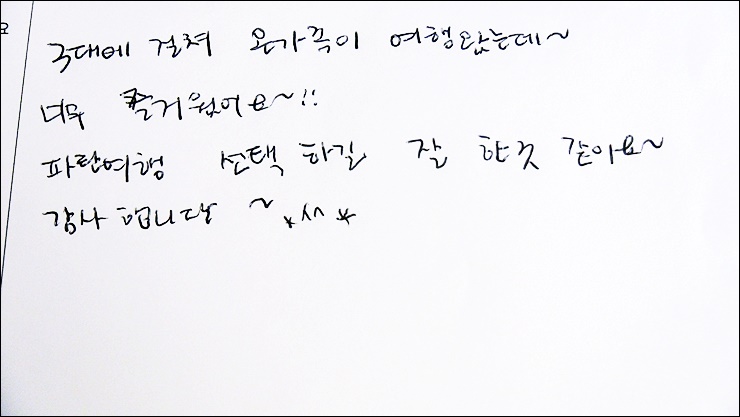 3대에 걸쳐 온가족이 여행왔는데~
너무 즐거웠어요~!!
파란여행 선택 하길 잘 한것 같아요~
감사합니다 ~ *^^*